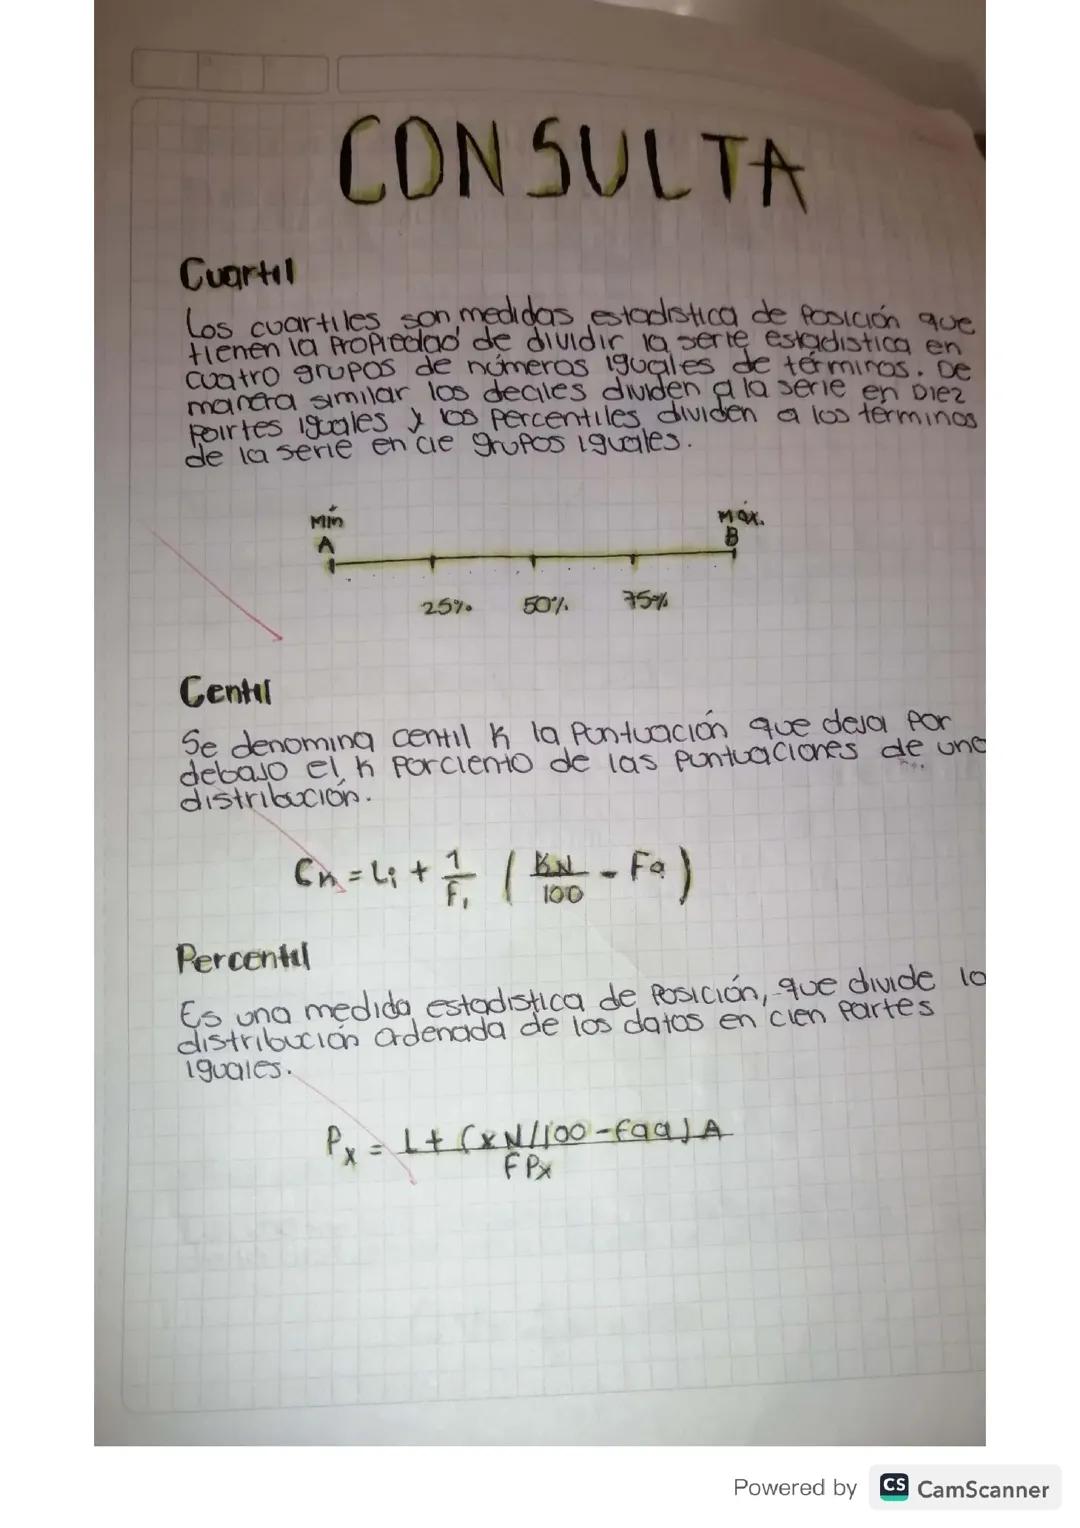 CONSULTA
Cuartil
Los cuartiles son medidas estadística de Posición que
tienen la Propiedad de dividir la serie estadística en
cuatro grupos de números iguales de términos. De
manera similar los deciles dividen a la serie en Diez
Partes iguales y los Percentiles dividen a los términos
de la serie en cie grupos iguales.
Mín Máx.
A B
25% 50% 75%
Centil
Se denomina centil K la Puntuación que deja Por
debajo el K Porciento de las Puntuaciones de una
distribución.
Ck = Li + 1/Fi ( KN/100 - Fa )
Percentil
Es una medida estadística de Posición, que divide la
distribución ordenada de los datos en cien Partes
iguales.
Px = L + (xN/100 - faa) A
FPx
Powered by CS CamScanner